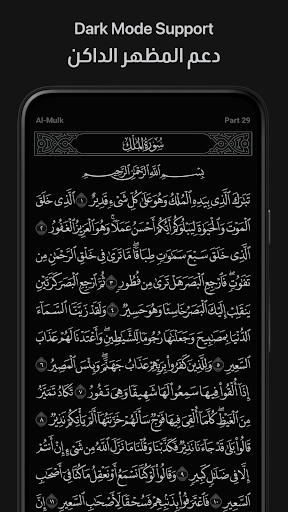 Dark Mode Support
دعم المظهر الداكن
Al-Mulk
Part 29
سُورَةُ المُلْكِ
بِسْمِ اللَّهِ الرَّحْمَٰنِ الرَّحِيمِ
تَبَٰرَكَ ٱلَّذِى بِيَدِهِ ٱلْمُلْكُ وَهُوَ عَلَىٰ كُلِّ شَىْءٍ قَدِيرٌ ١ ٱلَّذِى خَلَقَ
ٱلْمَوْتَ وَٱلْحَيَوٰةَ لِيَبْلُوَكُمْ أَيُّكُمْ أَحْسَنُ عَمَلًا ۚ وَهُوَ ٱلْعَزِيزُ ٱلْغَفُورُ ٢
ٱلَّذِى خَلَقَ سَبْعَ سَمَٰوَٰتٍ طِبَاقًا ۖ مَّا تَرَىٰ فِى خَلْقِ ٱلرَّحْمَٰنِ مِن
تَفَٰوُتٍ ۖ فَٱرْجِعِ ٱلْبَصَرَ هَلْ تَرَىٰ مِن فُطُورٍ ٣ ثُمَّ ٱرْجِعِ ٱلْبَصَرَ كَرَّتَيْنِ
يَنقَلِبْ إِلَيْكَ ٱلْبَصَرُ خَاسِئًا وَهُوَ حَسِيرٌ ٤ وَلَقَدْ زَيَّنَّا ٱلسَّمَآءَ
ٱلدُّنْيَا بِمَصَٰبِيحَ وَجَعَلْنَٰهَا رُجُومًا لِّلشَّيَٰطِينِ ۖ وَأَعْتَدْنَا لَهُمْ عَذَابَ
ٱلسَّعِيرِ ٥ وَلِلَّذِينَ كَفَرُوا۟ بِرَبِّهِمْ عَذَابُ جَهَنَّمَ ۖ وَبِئْسَ ٱلْمَصِيرُ ٦
إِذَآ أُلْقُوا۟ فِيهَا سَمِعُوا۟ لَهَا شَهِيقًا وَهِىَ تَفُورُ ٧ تَكَادُ تَمَيَّزُ
مِنَ ٱلْغَيْظِ ۖ كُلَّمَآ أُلْقِىَ فِيهَا فَوْجٌ سَأَلَهُمْ خَزَنَتُهَآ أَلَمْ يَأْتِكُمْ نَذِيرٌ ٨
قَالُوا۟ بَلَىٰ قَدْ جَآءَنَا نَذِيرٌ فَكَذَّبْنَا وَقُلْنَا مَا نَزَّلَ ٱللَّهُ مِن شَىْءٍ إِنْ أَنتُمْ
إِلَّا فِى ضَلَٰلٍ كَبِيرٍ ٩ وَقَالُوا۟ لَوْ كُنَّا نَسْمَعُ أَوْ نَعْقِلُ مَا كُنَّا فِىٓ أَصْحَٰبِ
ٱلسَّعِيرِ ١٠ فَٱعْتَرَفُوا۟ بِذَنۢبِهِمْ فَسُحْقًا لِّأَصْحَٰبِ ٱلسَّعِيرِ ١١